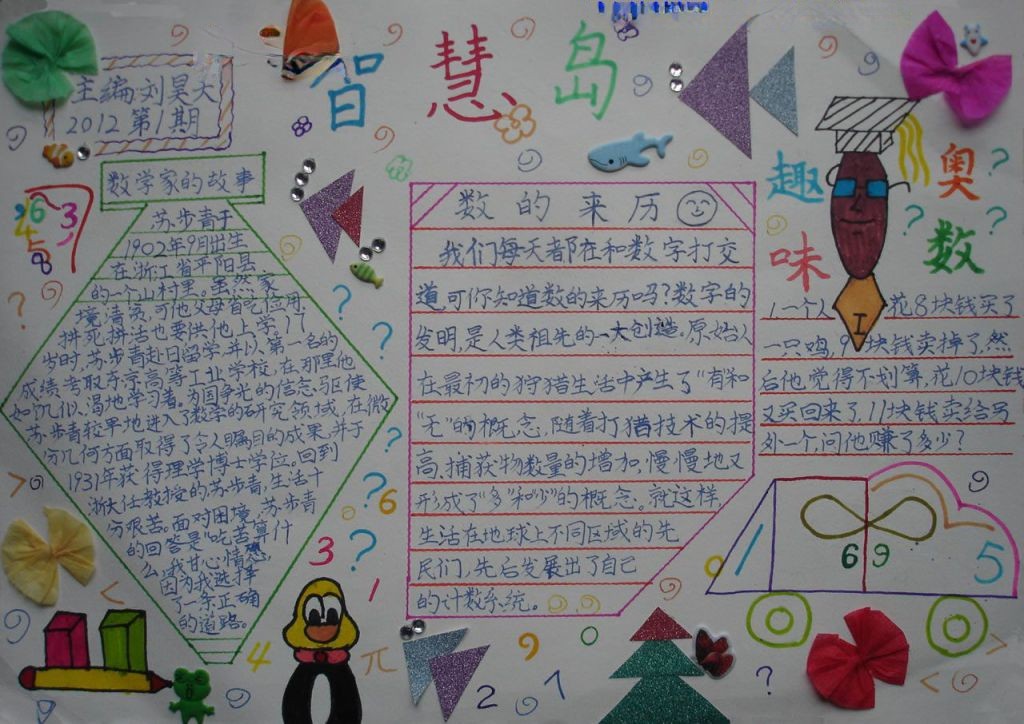 智慧岛
主编:刘昊天
2012第1期
数学家的故事
苏步青于
1902年9月出生
在浙江省平阳县
的一个山村里。虽然家
境清贫,可他父母省吃俭用,
拼死拼活也要供他上学。17
岁时,苏步青赴日留学,并以第一名的
成绩考取东京高等工业学校,在那里他
如饥似渴地学习着。为国争光的信念,驱使
苏步青较早地进入了数学的研究领域,在微
分几何方面取得了令人瞩目的成果,并于
1931年获得理学博士学位。回到
浙大任教授的苏步青,生活十
分艰苦。面对困境,苏步青
的回答是“吃苦算什
么,我甘心情愿,
因为我选择
了一条正确
的道路。
数的来历
我们每天都在和数字打交
道,可你知道数的来历吗?数字的
发明,是人类祖先的一大创造。原始人
在最初的狩猎生活中产生了“有和
“无”的概念,随着打猎技术的提
高,捕获物数量的增加,慢慢地又
形成了“多”和“少”的概念。就这样,
生活在地球上不同区域的先
民们,先后发展出了自己
的计数系统。
趣味奥数
1.一个人花8块钱买了
一只鸡,9块钱卖掉了,然
后他觉得不划算,花10块钱
又买回来了,11块钱卖给另
外一个,问他赚了多少?
6 3
4 5
8
I
6
3
1
4
π
2
1
0
1
6 9
5